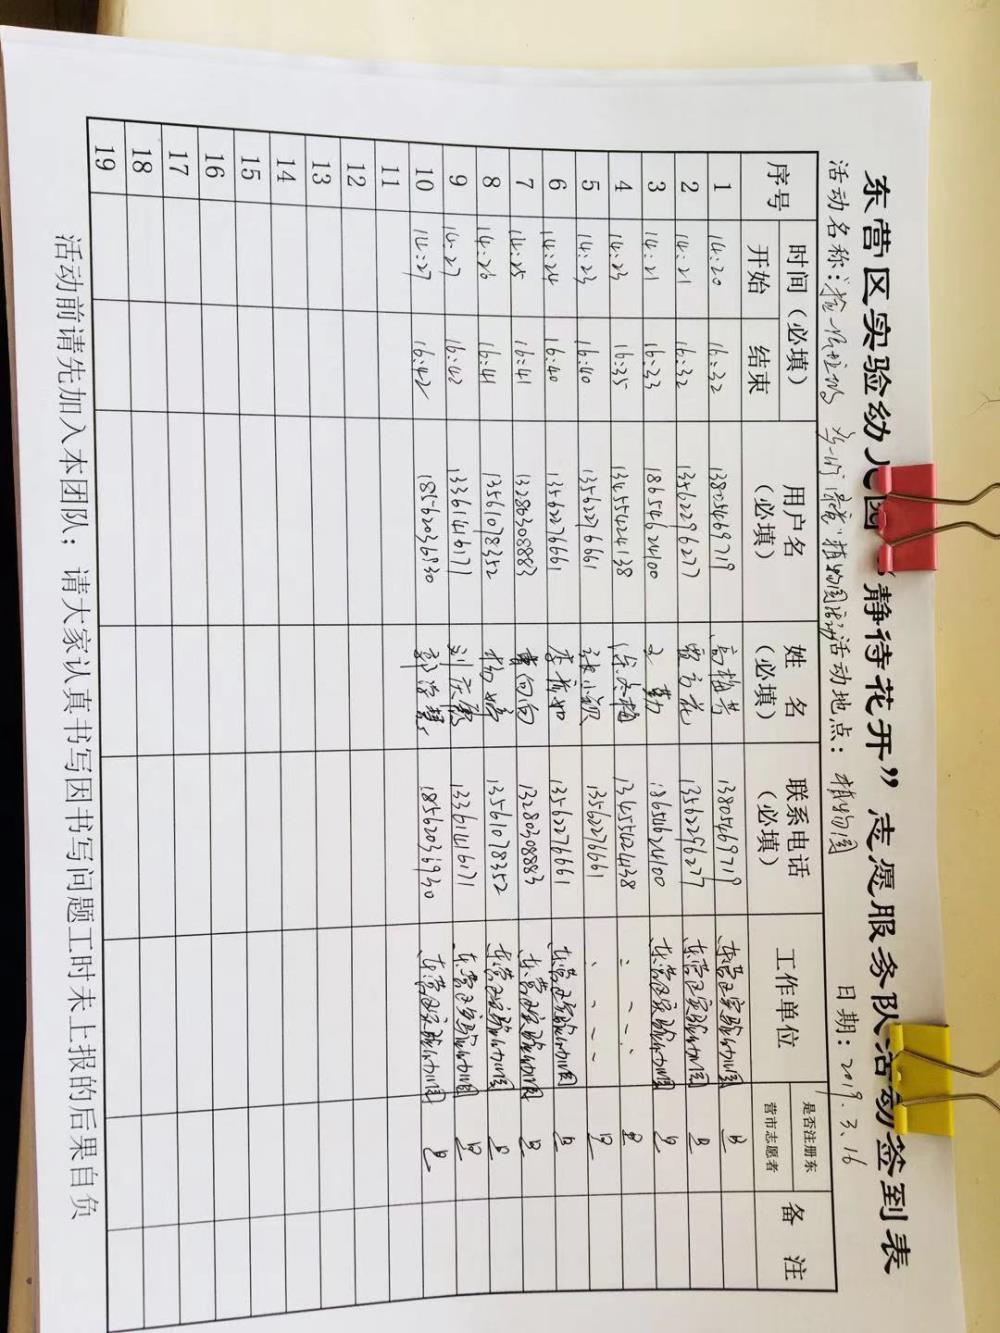 东营区实验幼儿园“静待花开”志愿服务队活动签到表
活动名称： 植物园活动 活动地点：植物园 日期：2019.3.16
序号 时间（必填） 用户名（必填） 姓名（必填） 联系电话（必填） 工作单位 是否注册东营市志愿者 备注
开始 结束
1 14:20 16:32 13805469719 高梅芳 13805469719 东营区实验幼儿园 是
2 14:21 16:32 13562296277 13562296277 东营区实验幼儿园 是
3 14:21 16:33 18654624100 18654624100 东营区实验幼儿园 是
4 14:23 16:35 13455424138 13455424138 是
5 14:23 16:40 13562276661 张小颖 13562276661 是
6 14:24 16:40 13562276661 13562276661 东营区实验幼儿园 是
7 14:25 16:41 13280308883 13280308883 东营区实验幼儿园 是
8 14:26 16:41 13561078352 杨婷 13561078352 东营区实验幼儿园 是
9 14:27 16:42 13361416171 13361416171 东营区实验幼儿园 是
10 14:27 16:42 18562036930 18562036930 东营区实验幼儿园 是
11
12
13
14
15
16
17
18
19
活动前请先加入本团队；请大家认真书写因书写问题工时未上报的后果自负